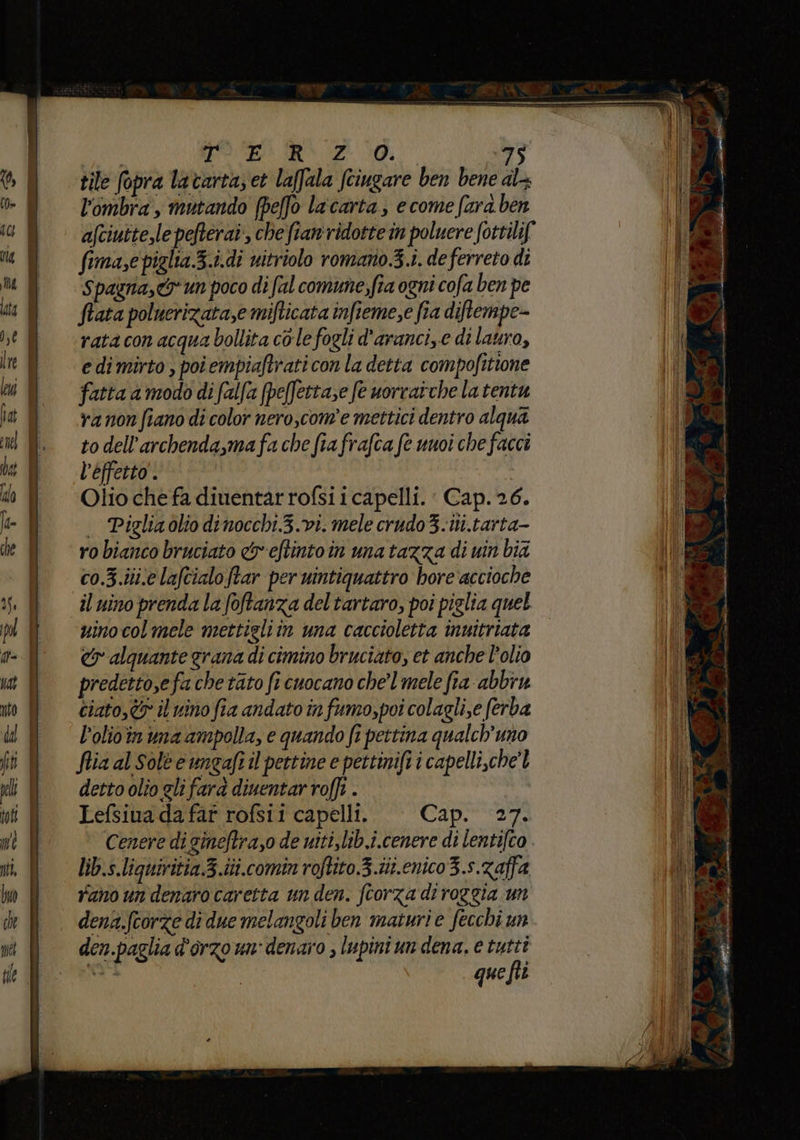 TERZO. 75
tile ſopra la carta, et laſſala ſciugare ben bene al-
l'ombra, mutando ſpeſſo la carta, e come ſarà ben
aſciutte, le peſterai, che ſian ridotte in poluere ſottiliſ
ſima, e piglia.℥.i.di uitriolo romano.℥.i. de ferreto di
Spagna, & un poco di ſal comune, ſia ogni coſa ben pe
ſtata poluerizata, e miſticata inſieme, e ſia diſtempe-
rata con acqua bollita cō le fogli d'aranci, e di lauro,
e di mirto, poi empiaſtrati con la detta compoſitione
fatta a modo di ſalſa ſpeſſetta, e ſe uorrai che la tentu
ra non ſiano di color nero, com'e mettici dentro alquā
to dell'archenda, ma fa che ſia fraſca ſe uuoi che facci
l'effetto.
Olio che fa diuentar roſsi i capelli. Cap. 26.
Piglia olio di nocchi.℥.vi. mele crudo ℥.iii.tarta-
ro bianco bruciato & eſtinto in una tazza di uin biā
co.℥.iii.e laſcialo ſtar per uintiquattro hore accioche
il uino prenda la ſoſtanza del tartaro, poi piglia quel
uino col mele mettigli in una caccioletta inuitriata
& alquante grana di cimino bruciato, et anche l'olio
predetto, e fa che tāto ſi cuocano che'l mele ſia abbru
ciato, & il uino ſia andato in fumo, poi colagli, e ſerba
l'olio in una ampolla, e quando ſi pettina qualch'uno
ſtia al Sole e ungaſi il pettine e pettiniſi i capelli, che'l
detto olio gli farà diuentar roſſi.
Leſsiua da far roſsi i capelli. Cap. 27.
Cenere di gineſtra, o de uiti, lib.i.cenere di lentiſco
lib.s.liquiritia.℥.iii.comin roſtito.℥.iii.enico ℥.s.zaffa
rano un denaro caretta un den. ſcorza di roggia un
dena.ſcorze di due melangoli ben maturi e ſecchi un
den.paglia d'orzo un denaro, lupini un dena. e tutti
queſti